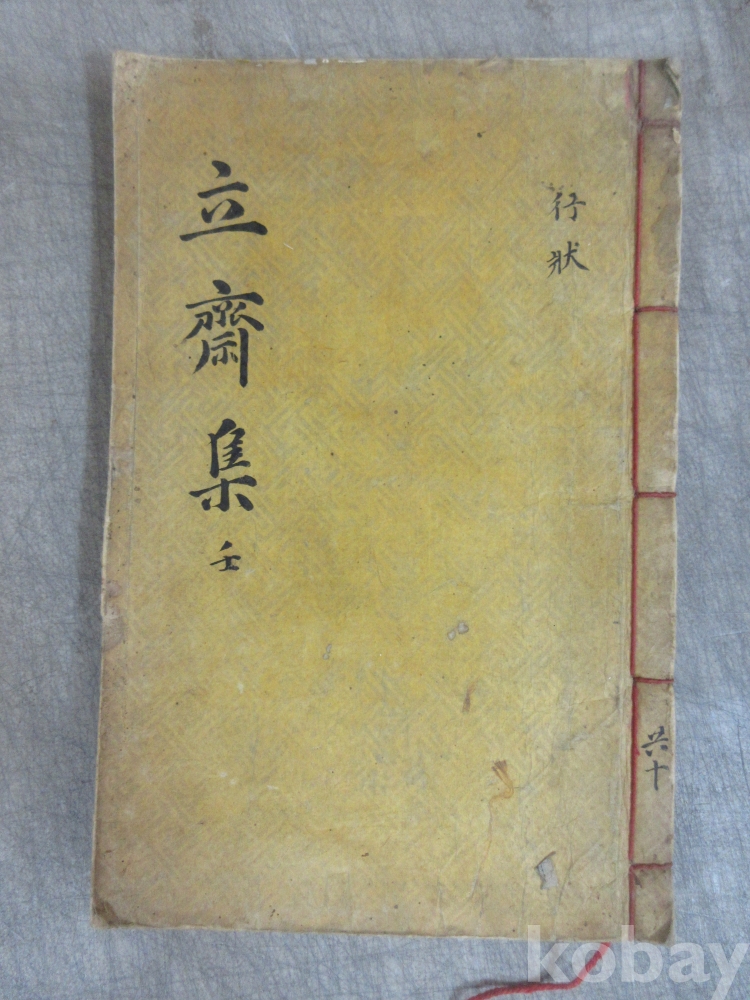 行狀
立齋集 壬
共十
kobay